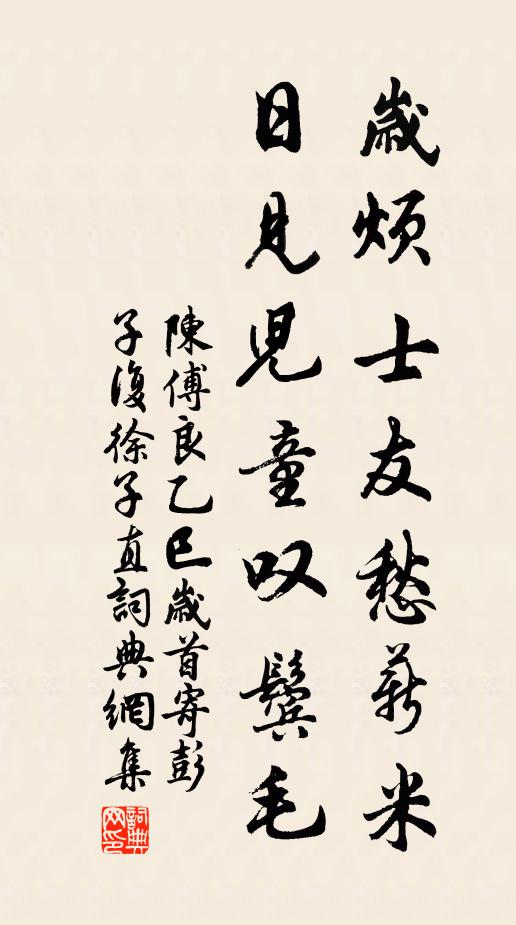 歲煩士友愁薪米
日見児童叹鬓毛
陳傅良乙巳歲首寄彭
子復徐子直詞典網集
詞典
网印